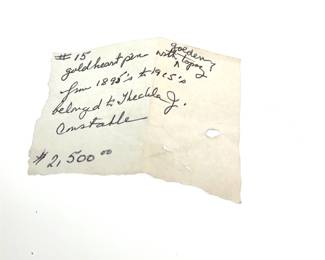 #15
gold heart pin with golden topaz
from 1895's to 1915's
belonged to Theckla J.
Constable
$2,500.00